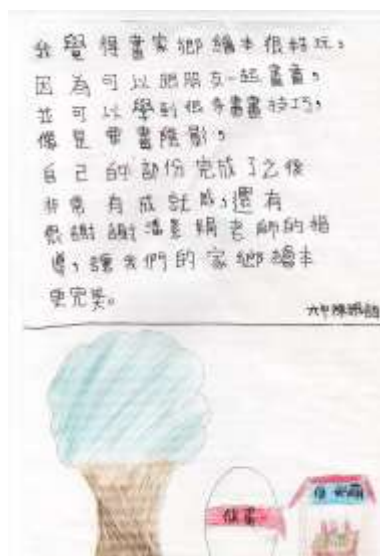 我覺得畫家鄉繪本很好玩，
因為可以跟朋友一起畫畫，
並可以學到很多畫畫技巧，
像是要畫陰影，
自己的部份完成了之後
非常有成就感，還有
感謝謝潘美娟老師的指
導，讓我們的家鄉繪本
更完美。
六甲陳